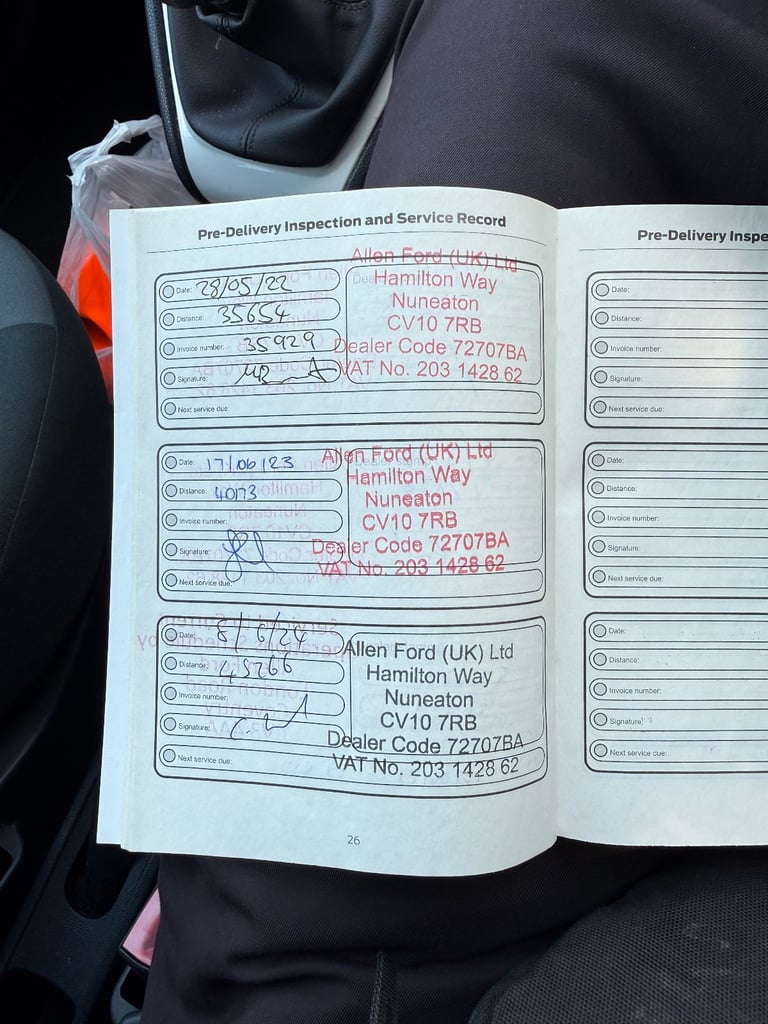 Pre-Delivery Inspection and Service Record
Date: 28/05/22
Distance: 35654
Invoice number: 35929
Signature:
Next service due:
Allen Ford (UK) Ltd
Hamilton Way
Nuneaton
CV10 7RB
Dealer Code 72707BA
VAT No. 203 1428 62
Date: 17/06/23
Distance: 40173
Invoice number:
Signature:
Next service due:
Allen Ford (UK) Ltd
Hamilton Way
Nuneaton
CV10 7RB
Dealer Code 72707BA
VAT No. 203 1428 62
Date: 8/6/24
Distance: 45266
Invoice number:
Signature:
Next service due:
Allen Ford (UK) Ltd
Hamilton Way
Nuneaton
CV10 7RB
Dealer Code 72707BA
VAT No. 203 1428 62
26
Pre-Delivery Inspe
Date:
Distance:
Invoice number:
Signature:
Next service due:
Date:
Distance:
Invoice number:
Signature:
Next service due:
Date:
Distance:
Invoice number:
Signature:
Next service due: